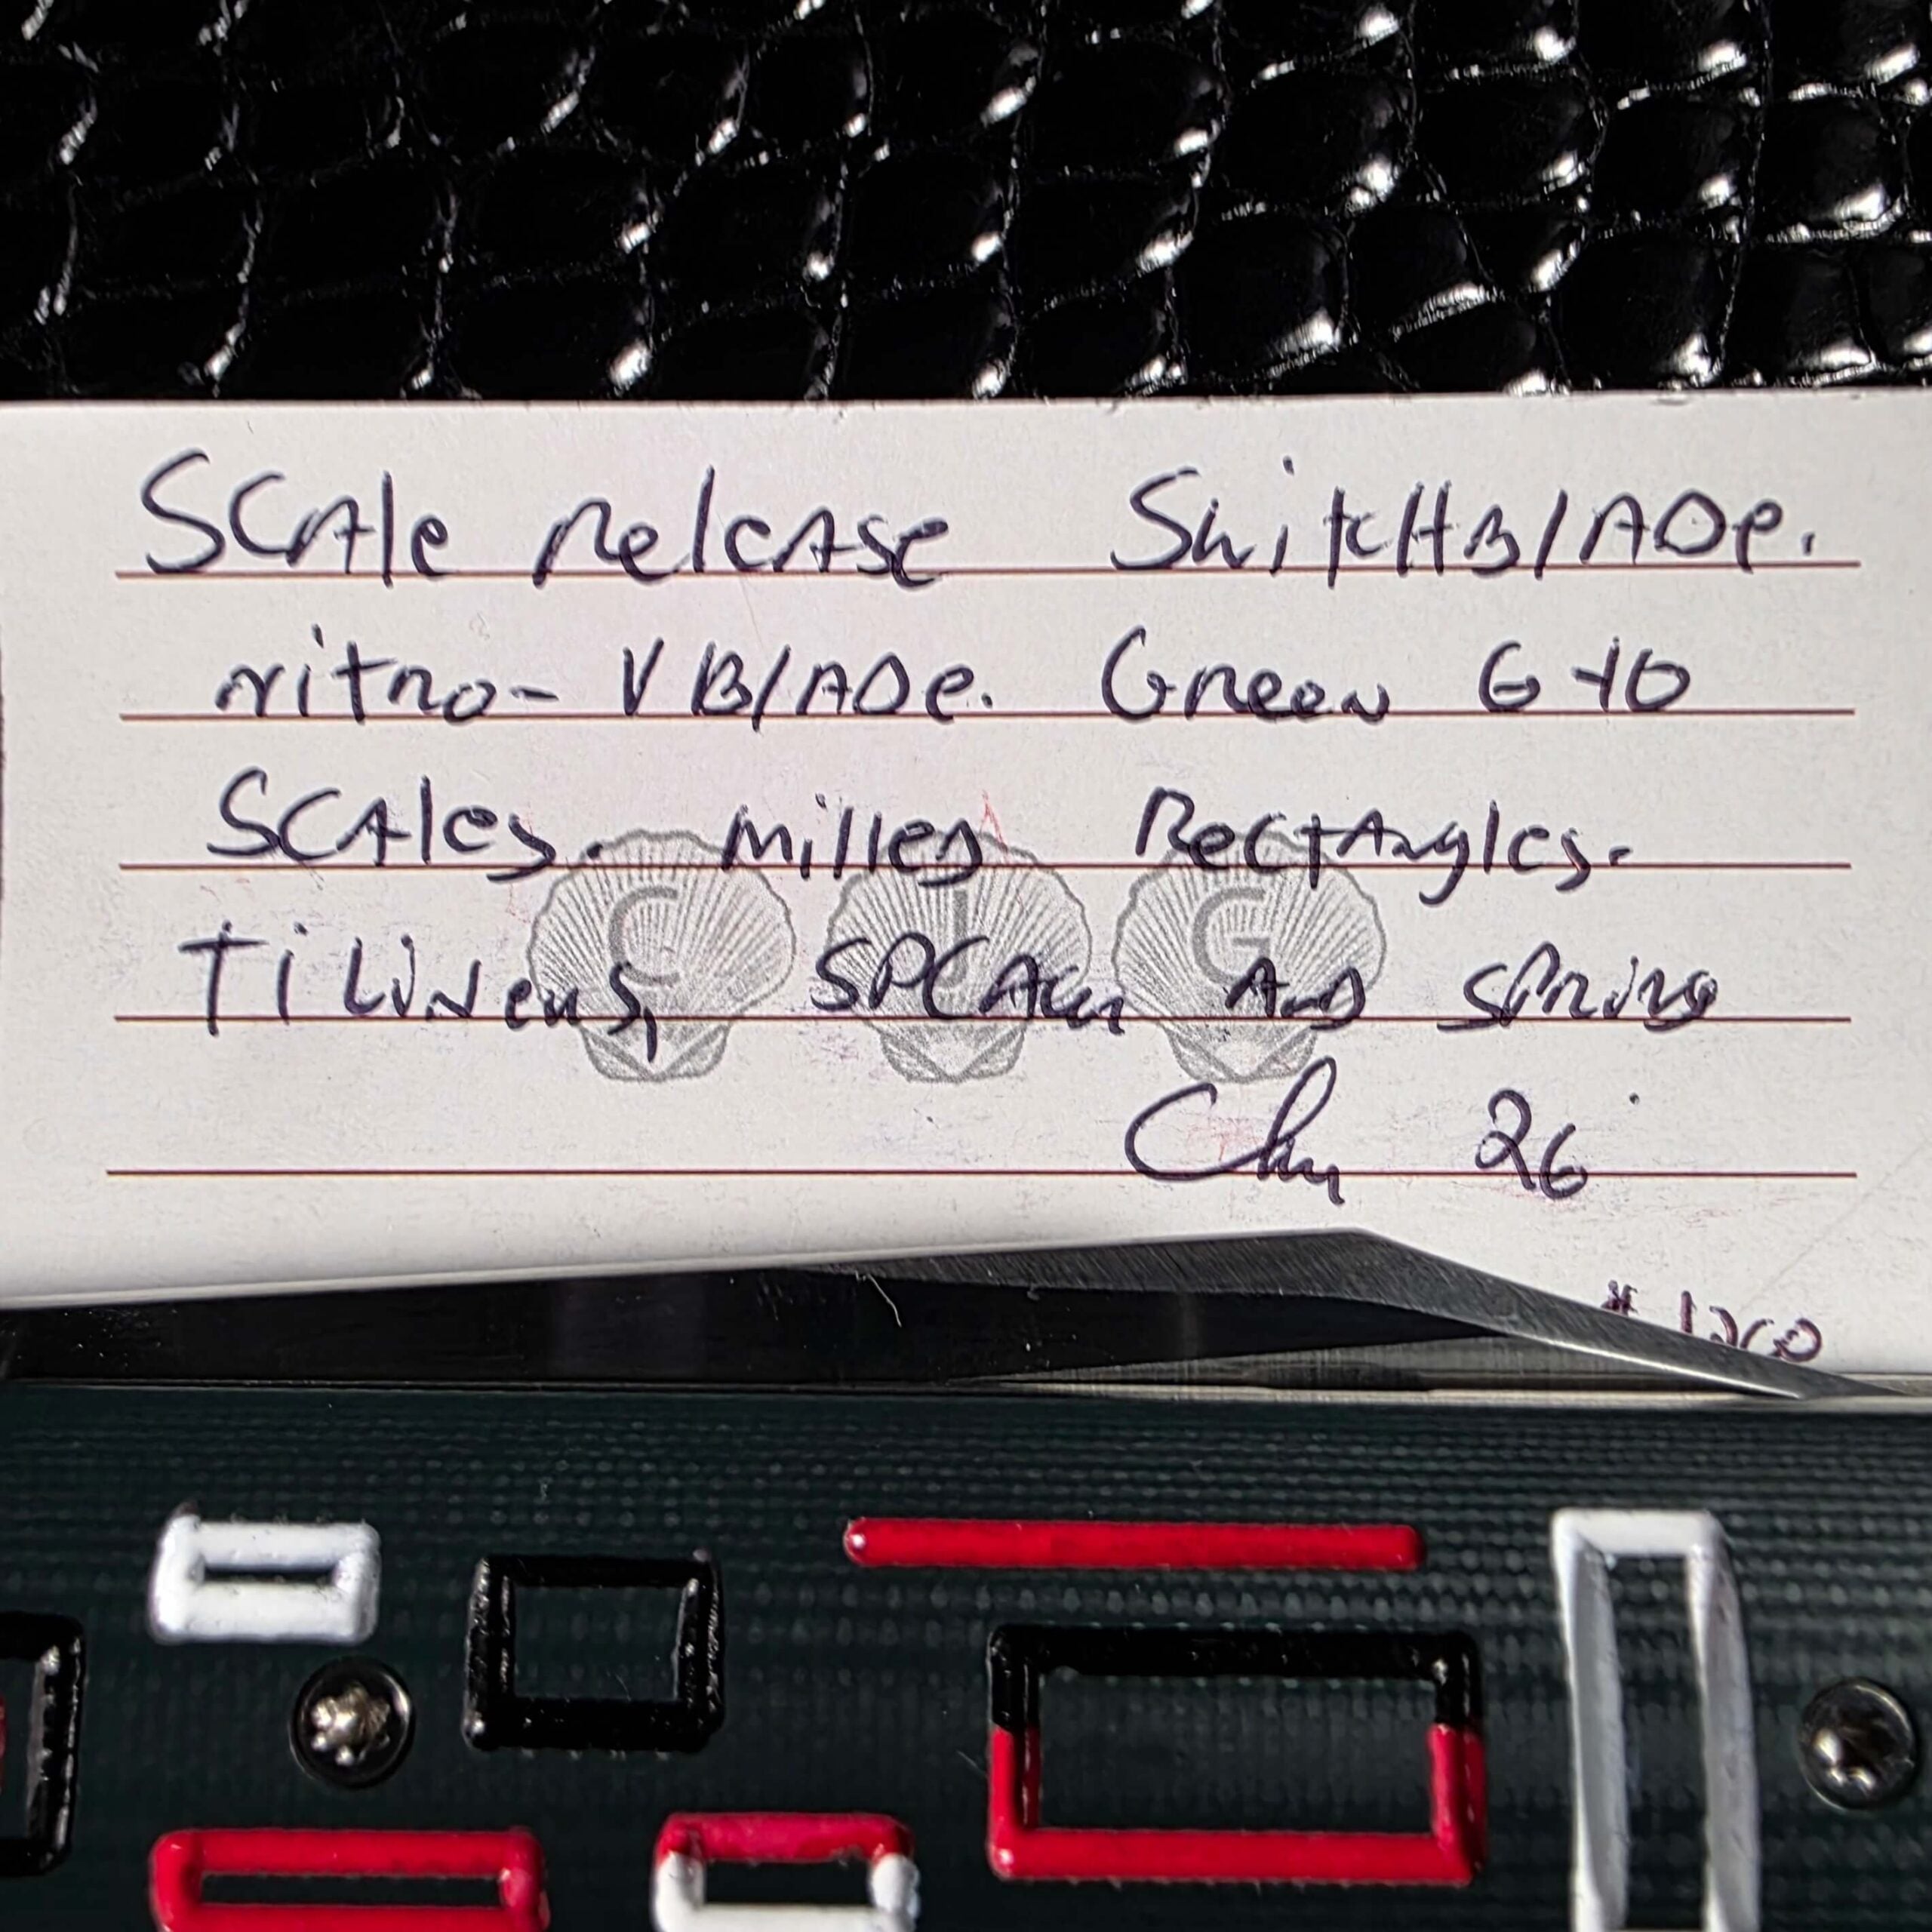 SCAle release SwitcHBlADe.
nitro-V BlADe. Green G-10
SCAles. Milled RectAngles.
Ti Liners, SPCAcer AnD SPring
C I G
26